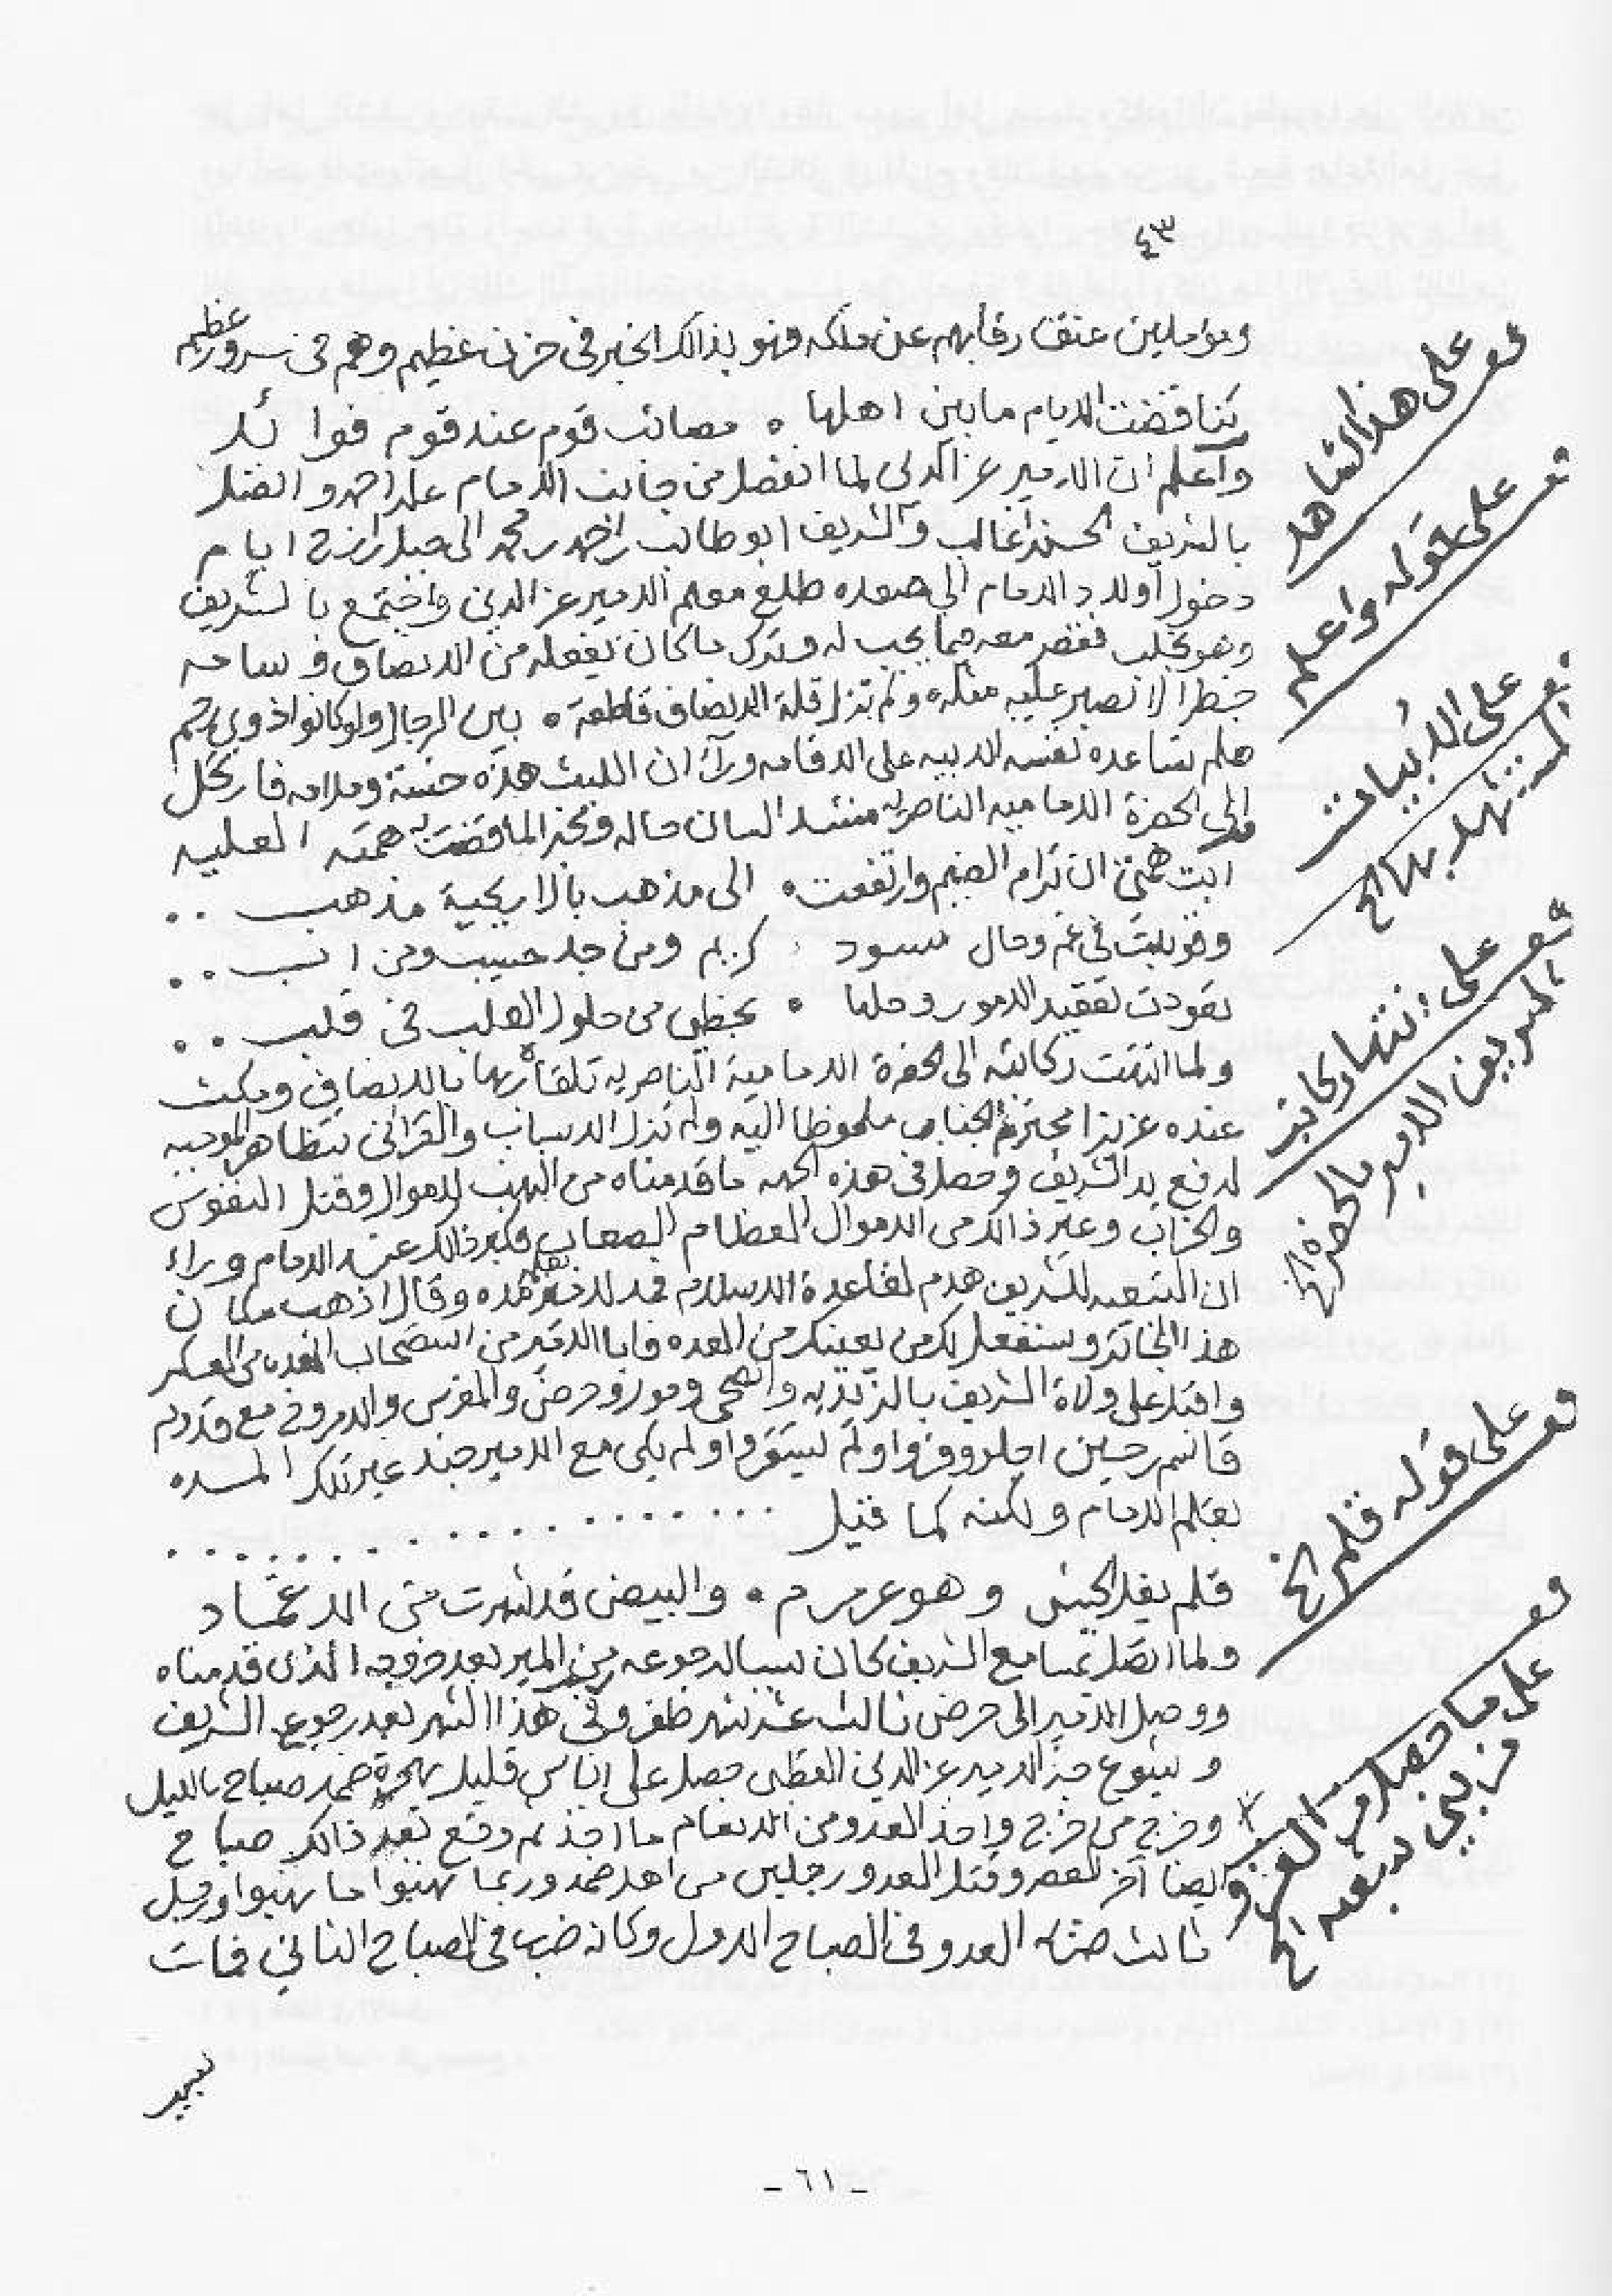 ٤٣
ومؤملين عتق رقابهم عن ملكه فهو بذالك الخبر في حزن عظيم وهم في سرور عظيم
كذا قضت الايام ما بين اهلها ٥ مصائب قوم عند قوم فوائد
واعلم ان الامير عز الدين لما انفصل من جانب الامام علي احمد و اتصل
بالشريف الحسن غالب والشريف ابو طالب احمد محمد الى جبل رازح ايام
دخول اولاد الامام الى صعده طلع معهم الامير عز الدين واجتمع بالشريف
وهو بحلب فقصر معه فيما يجب له وترك ما كان يفعله من الانصاف و سامه
خطرا لا تصبر عليه مثله ولم تزل قلة الانصاف قاطعة ٥ بين الرجال ولو كانوا ذوي رحم
فلم تساعده نفسه الابيه على الاقامه ورآى ان اللبث هذه خسة وملامه فارتحل
الى الحضرة الاماميه الناصريه منشد السان حاله ومخبرا لما قضت به همته العليه
ابت همتي ان ترام الضيم وارتفعت ٠ الى مذهب بالاريحية مذهب ..
كريم ومن جد حسيب ومن اب ..
تعودت تعقيد الامور وحلها ٥ من حلول القلب في قلب ..
ولما انتهت ركائبه الى الحضرة الامامية الناصريه تلقاه ربها بالانصاف ومكث
عنده عزيزا محترم الجناب ملحوظا اليه ولم تزل الاسباب والقرائن تتظاهر الموجبه
لدفع يد الشريف وحصل في هذه الجهه ما قدمناه من النهب للاموال وقتل النفوس
والخراب وغير ذالك من الاهوال العظام الصعاب وكبر ذالك عند الامام وراء
ان للشريف هدم لقاعدة الاسلام وقال اذهب مكان
هذا الجائر وسنفعل لك من يعينك من العده فابا الامير من استصحاب العده من العسكر
واقبل على ولاة الشريف بالزيديه والضحي ومور وحرض والمفرس والامروخ مع قدوم
قاسم حسين اجلو وفروا ولم يستقروا ولم يكن مع الامير جند غير تلك المسده
بقلم الامام ولكنه كما قيل . . . . . . . . . . . . .
قلم يفل الجيش وهو عرمرم ٠ والبيض قد شهرت من الاغماد
ولما اتصل بمسامع الشريف كان سببا لرجوعه من المير بعد خروجه الذي قدمناه
ووصل الامير الى حرض ثالث عشر شهر ظفر وفي هذا الشهر بعد رجوع الشريف
الامير عز الدين القطبي حصل على اناس قليل بهجرة ضمد صباح بالليل
وخرج من خرج واخذ العدو من الانعام ما اخذ ثم وقع بعد ذالك صباح
ايضا آخر العصر وقتل العدو رجلين من اهل ضمد وربما نهبوا ما نهبوا وقيل
ثالث العدو في الصباح الاول وكان ضرب في الصباح الثاني فمات
بيد
قف على هذا الشاهد
قف على قوله واعلم
قف على الابيات المستشهد بها الخ
قف على انتهاء ركائب الشريف الامير بالحضرة الخ
قف على قوله قلم الخ
قف على ما حصل من الغزو من بني سبعه الخ
- ٦١ -